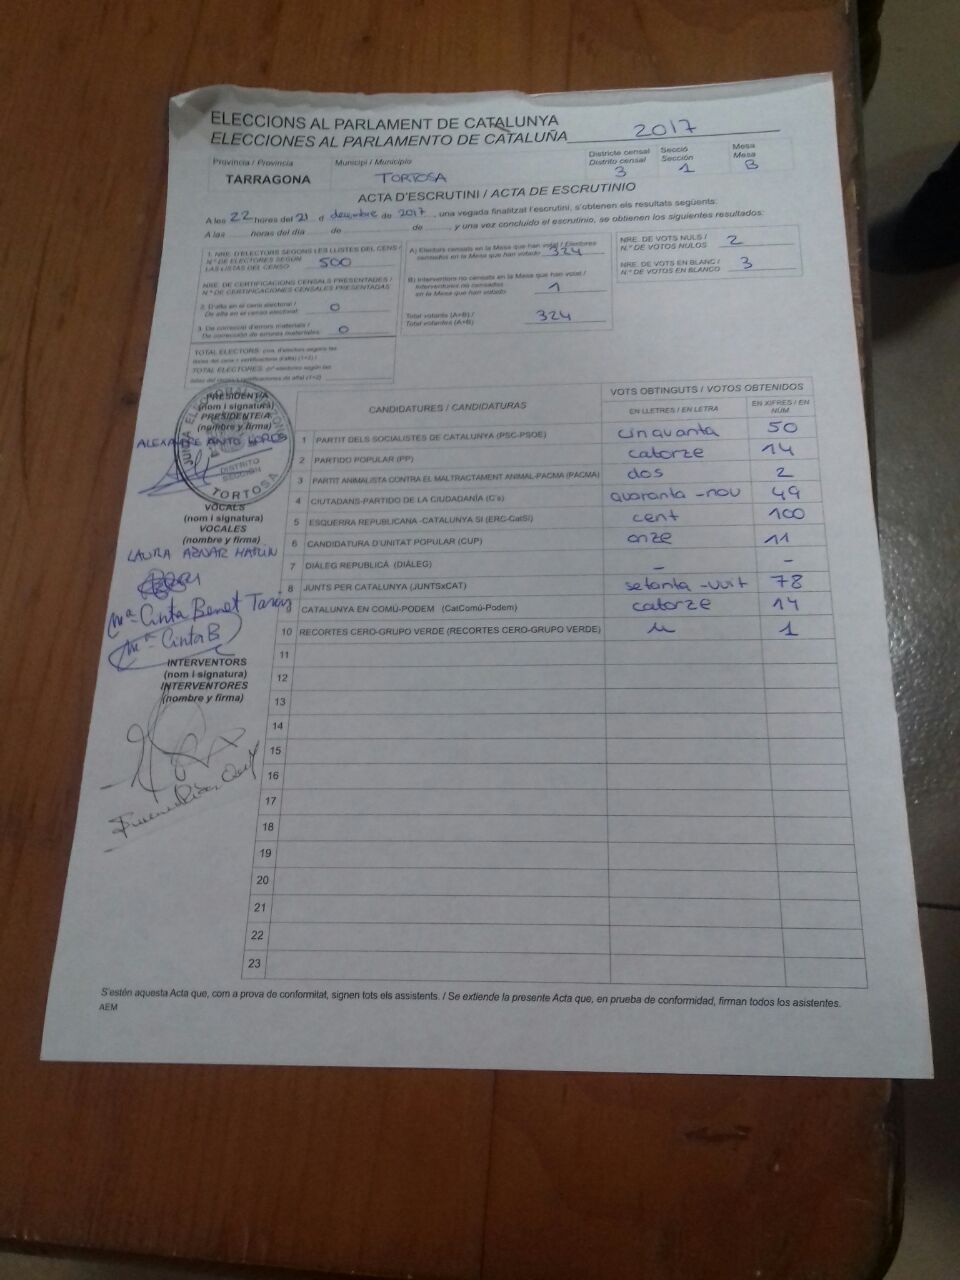 ELECCIONS AL PARLAMENT DE CATALUNYA
ELECCIONES AL PARLAMENTO DE CATALUÑA 2017
Provincia / Provincia Municipi / Municipio Districte censal Secció Mesa
Distrito censal Sección Mesa
TARRAGONA TORTOSA 3 1 B
ACTA D'ESCRUTINI / ACTA DE ESCRUTINIO
A les 22 hores del 21 d desembre de 2017, una vegada finalitzat l'escrutini, s'obtenen els resultats següents:
A las hores del día de de y una vez concluido el escrutinio, se obtienen los siguientes resultados:
1. NRE. D'ELECTORS SEGONS LES LLISTES DEL CENS /
N.º DE ELECTORES SEGÚN
LAS LISTAS DEL CENSO 500
NRE. DE CERTIFICACIONS CENSALS PRESENTADES /
N.º DE CERTIFICACIONES CENSALES PRESENTADAS
2. D'alta en el cens electoral /
De alta en el censo electoral: 0
3. De correcció d'errors materials /
De corrección de errores materiales: 0
TOTAL ELECTORS:
TOTAL ELECTORES:
A) Electors censats en la Mesa que han votat / Electores
censados en la Mesa que han votado 324
B) Interventors no censats en la Mesa que han votat /
Interventores no censados
en la Mesa que han votado 1
Total votants (A+B) /
Total votantes (A+B) 324
NRE. DE VOTS NULS /
N.º DE VOTOS NULOS 2
NRE. DE VOTS EN BLANC /
N.º DE VOTOS EN BLANCO 3
PRESIDENT/A
(nom i signatura)
PRESIDENTE/A
(nombre y firma)
JUNTA ELECTORAL
DISTRITO
SECCIÓN
TORTOSA
VOCALS
(nom i signatura)
VOCALES
(nombre y firma)
LAURA AZNAR
Mª Cinta Benet
Mª Cinta B
INTERVENTORS
(nom i signatura)
INTERVENTORES
(nombre y firma)
CANDIDATURES / CANDIDATURAS VOTS OBTINGUTS / VOTOS OBTENIDOS
EN LLETRES / EN LETRA EN XIFRES / EN NÚM
1 PARTIT DELS SOCIALISTES DE CATALUNYA (PSC-PSOE) cinquanta 50
2 PARTIDO POPULAR (PP) catorze 14
3 PARTIT ANIMALISTA CONTRA EL MALTRACTAMENT ANIMAL-PACMA (PACMA) dos 2
4 CIUTADANS-PARTIDO DE LA CIUDADANÍA (C's) quaranta-nou 49
5 ESQUERRA REPUBLICANA -CATALUNYA SÍ (ERC-CatSí) cent 100
6 CANDIDATURA D'UNITAT POPULAR (CUP) onze 11
7 DIÀLEG REPUBLICÀ (DIÀLEG) - -
8 JUNTS PER CATALUNYA (JUNTSxCAT) setanta-vuit 78
9 CATALUNYA EN COMÚ-PODEM (CatComú-Podem) catorze 14
10 RECORTES CERO-GRUPO VERDE (RECORTES CERO-GRUPO VERDE) u 1
11
12
13
14
15
16
17
18
19
20
21
22
23
S'estén aquesta Acta que, com a prova de conformitat, signen tots els assistents. / Se extiende la presente Acta que, en prueba de conformidad, firman todos los asistentes.
AEM